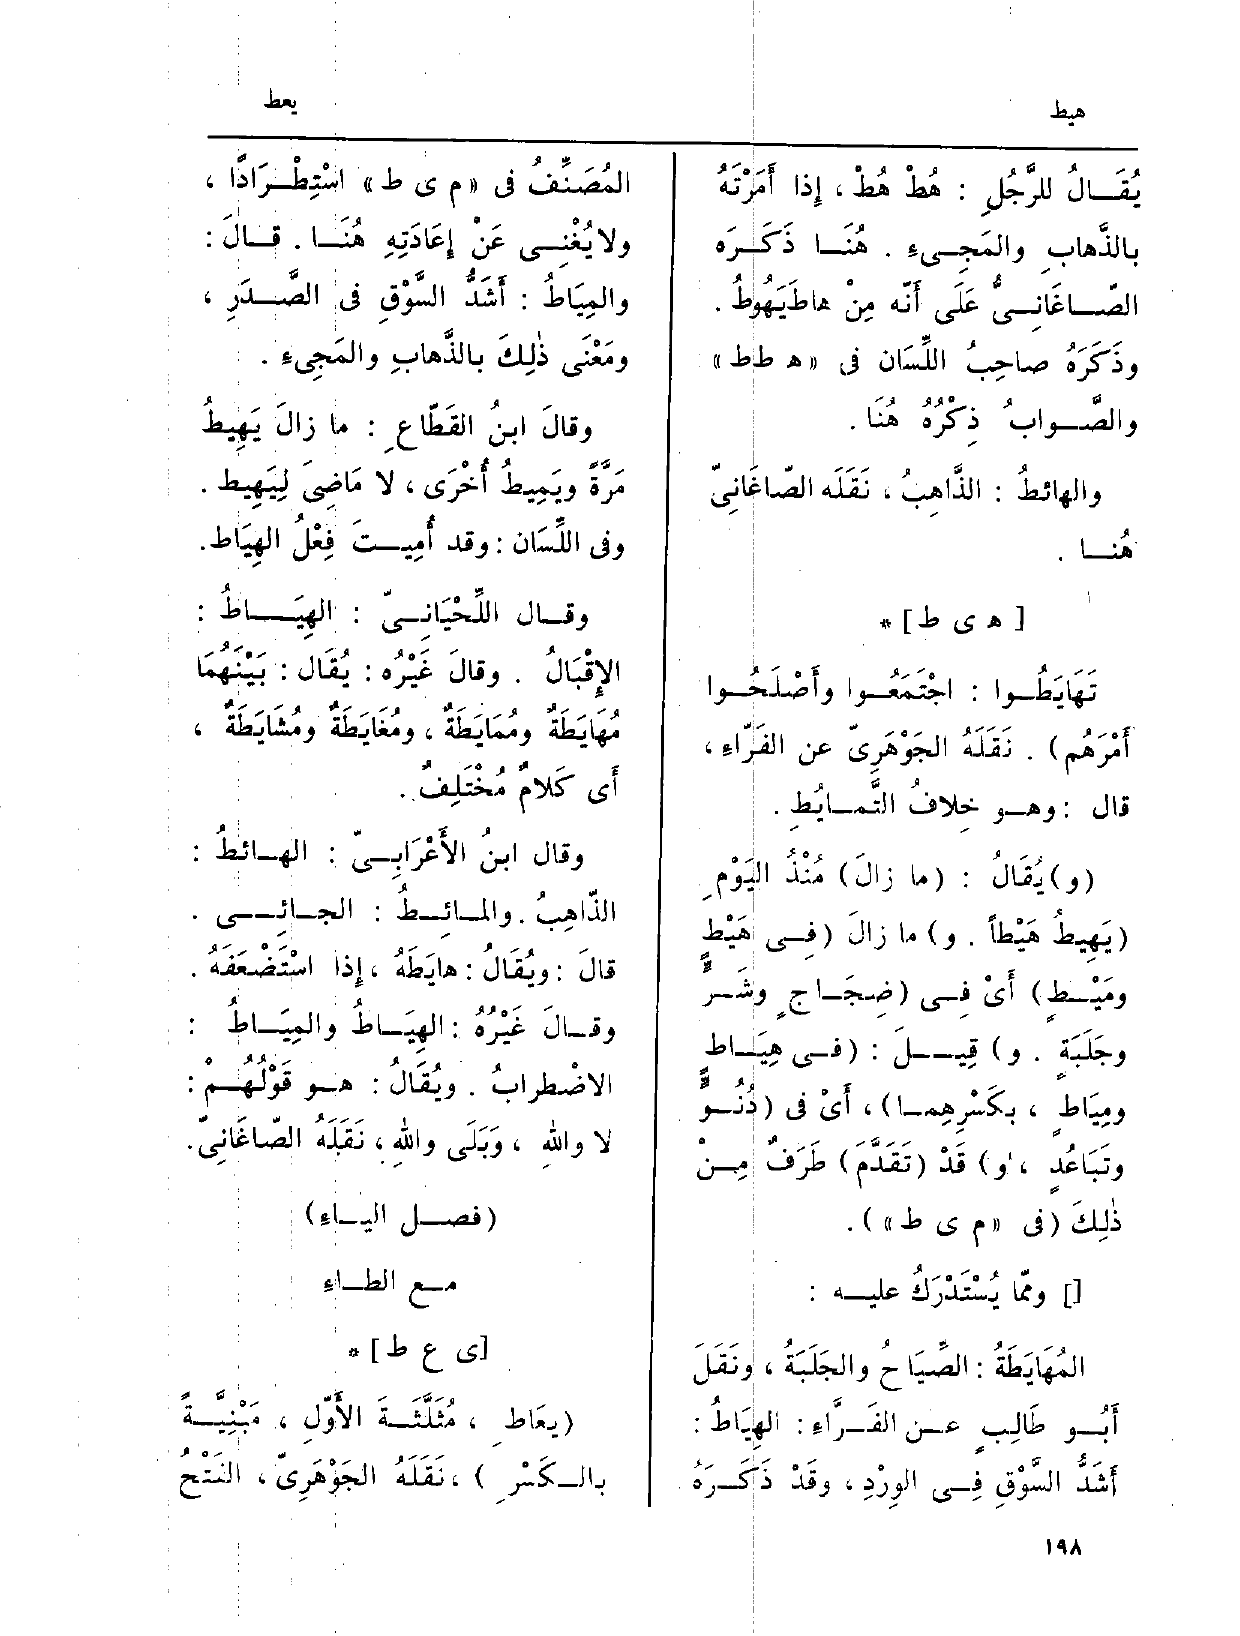 هيط
يعط
يُقَـالُ للرَّجُلِ : هُطْ هُطْ ، إذا أَمَرْتَهُ
بالذَّهابِ والمَجِـىءِ . هُنَـا ذَكَـرَه
الصّـاغَانِـىُّ عَلَى أَنَّه مِنْ هاطَ يَهُوطُ .
وذَكَرَهُ صاحِبُ اللِّسَان فى «ه ط ط»
والصَّـوابُ ذِكْرُهُ هُنَا .
والهائطُ : الذَّاهِبُ ، نَقَلَه الصّاغَانِىّ
هُنـا .
[ ه ى ط ] *
تَهَايَطُـوا : اجْتَمَعُـوا وأَصْلَحُـوا
أَمْرَهُم) . نَقَلَهُ الجَوْهَرِىّ عن الفَرّاءِ ،
قال : وهـو خِلافُ التَّمـايُطِ .
(و) يُقَالُ : (ما زالَ) مُنْذُ اليَوْمِ
(يَهِيطُ هَيْطاً . و) ما زالَ (فِـى هَيْطٍ
ومَيْـطٍ) أَىْ فِـى (ضِجَـاجٍ وشَـرٍّ
وجَلَبَةٍ . و) قِيـلَ : (فـى هِيَـاطٍ
ومِيَاطٍ ، بكَسْرِهِمـا) ، أَىْ فى (دُنُـوٍّ
وتَبَاعُدٍ ، و) قَدْ (تَقَدَّمَ) طَرَفٌ مِـنْ
ذٰلِكَ (فى «م ى ط») .
[] وممّا يُسْتَدْرَكُ عليـه :
المُهَايَطَةُ : الصِّيَاحُ والجَلَبَةُ ، ونَقَلَ
أَبُـو طَالِبٍ عـن الفَـرَّاءِ : الهِيَاطُ :
أَشَدُّ السَّوْقِ فِـى الوِرْدِ ، وقَدْ ذَكَـرَهُ
المُصَنِّفُ فى «م ى ط» اسْتِطْـرَادًا ،
ولا يُغْنِـى عَنْ إِعَادَتِهِ هُنَـا . قـالَ :
والمِيَاطُ : أَشَدُّ السَّوْقِ فى الصَّـدَرِ ،
ومَعْنَى ذٰلِكَ بالذَّهابِ والمَجِىءِ .
وقالَ ابنُ القَطّاعِ : ما زالَ يَهِيطُ
مَرَّةً ويَمِيطُ أُخْرَى ، لا مَاضِىَ لِيَهِيط .
وفى اللِّسَان : وقد أُمِيـتَ فِعْلُ الهِيَاط.
وقـال اللِّحْيَانِـىّ : الهِيَـاطُ :
الإِقْبَالُ . وقالَ غَيْرُه : يُقَال : بَيْنَهُمَا
مُهَايَطَةٌ ومُمَايَطَةٌ ، ومُغَايَطَةٌ ومُشَايَطَةٌ ،
أَى كَلامٌ مُخْتَلِفٌ .
وقال ابنُ الأَعْرَابِـىّ : الهـائطُ :
الذّاهِبُ . والمـائِـطُ : الجـائِـى .
قالَ : ويُقَالُ : هايَطَهُ ، إذا اسْتَضْعَفَهُ .
وقـالَ غَيْرُهُ : الهِيَـاطُ والمِيَـاطُ :
الاضْطِرابُ . ويُقَالُ : هـو قَوْلُهُـمْ :
لا واللهِ ، وَبَلَى واللهِ ، نَقَلَهُ الصّاغَانِىّ.
(فصـل اليـاء)
مـع الطـاءِ
[ى ع ط] *
(يعَاطِ ، مُثَلَّثَـةَ الأَوّلِ ، مَبْنِيَّـةً
بالـكَسْرِ ) ، نَقَلَهُ الجَوْهَرِىّ ، الفَتْحُ
١٩٨